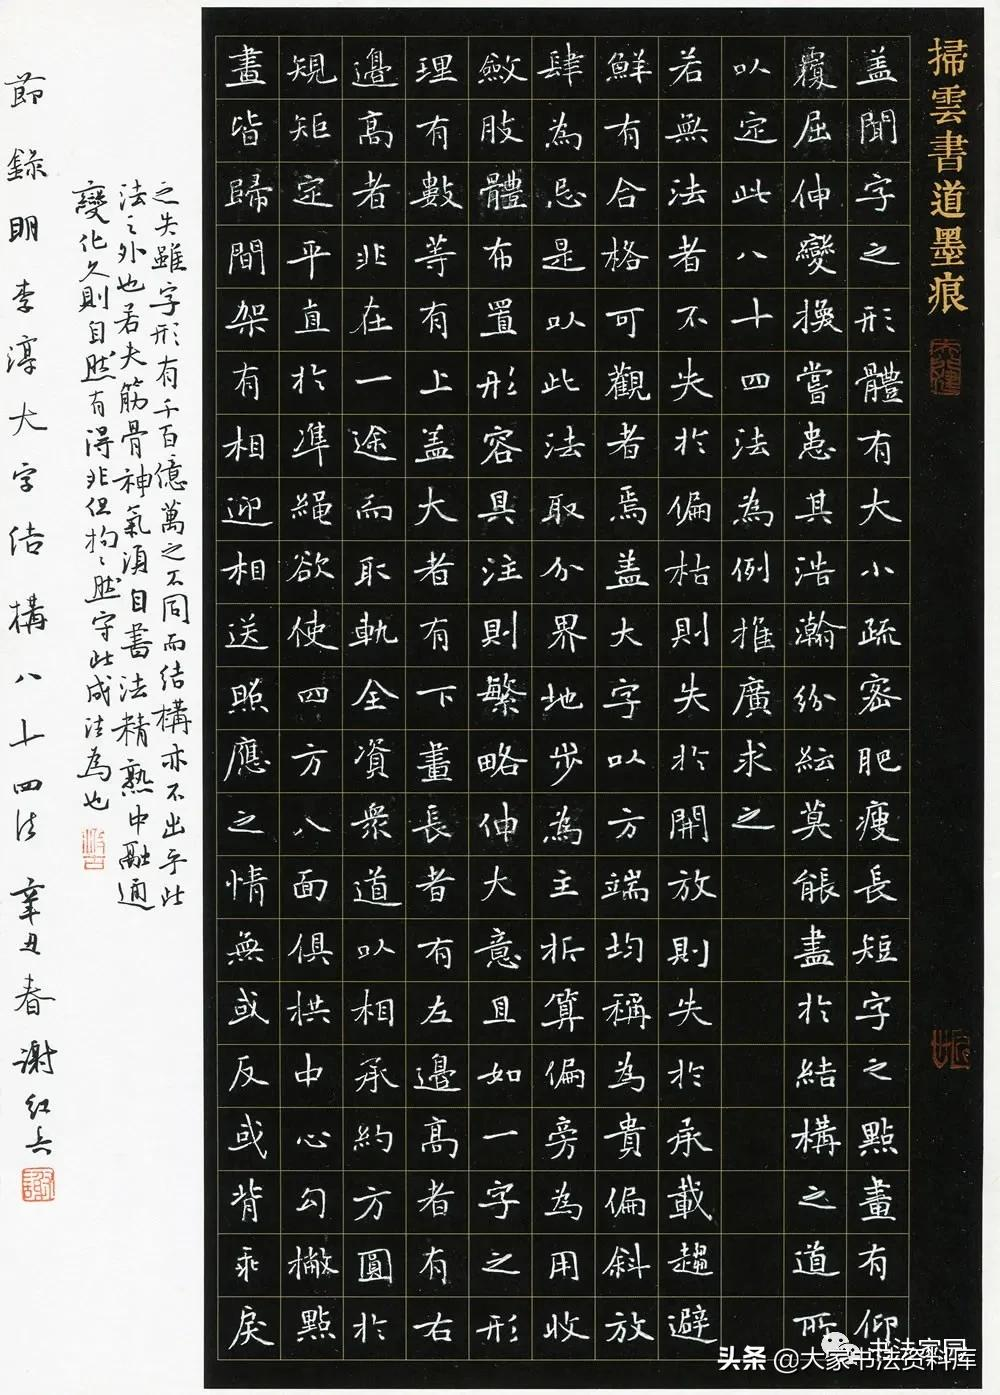 掃雲書道墨痕
盖聞字之形體有大小疏密肥瘦長短字之點畫有仰
覆屈伸變換嘗患其浩瀚紛紜莫能盡於結構之道所
以定此八十四法為例推廣求之
若無法者不失於偏枯則失於開放則失於承載趨避
鮮有合格可觀者焉盖大字以方端均稱為貴偏斜放
肆為忌是以此法取分界地步為主折算偏旁為用收
斂肢體布置形容具注則繁略伸大意且如一字之形
理有數等有上盖大者有下畫長者有左邊高者有右
邊高者非在一途而取軌全資眾道以相承約方圓於
規矩定平直於準繩欲使四方八面俱拱中心勾撇點
畫皆歸間架有相迎相送照應之情無或反或背乖戾
之失雖字形有千百億萬之不同而结構亦不出乎此
法之外也若夫筋骨神氣須自書法精熟中融通
變化久則自然有得非但拘拘然守此成法為也
節録明李淳大字结構八十四法 辛丑春 謝红兵
书法家园
头条 @大家书法资料库